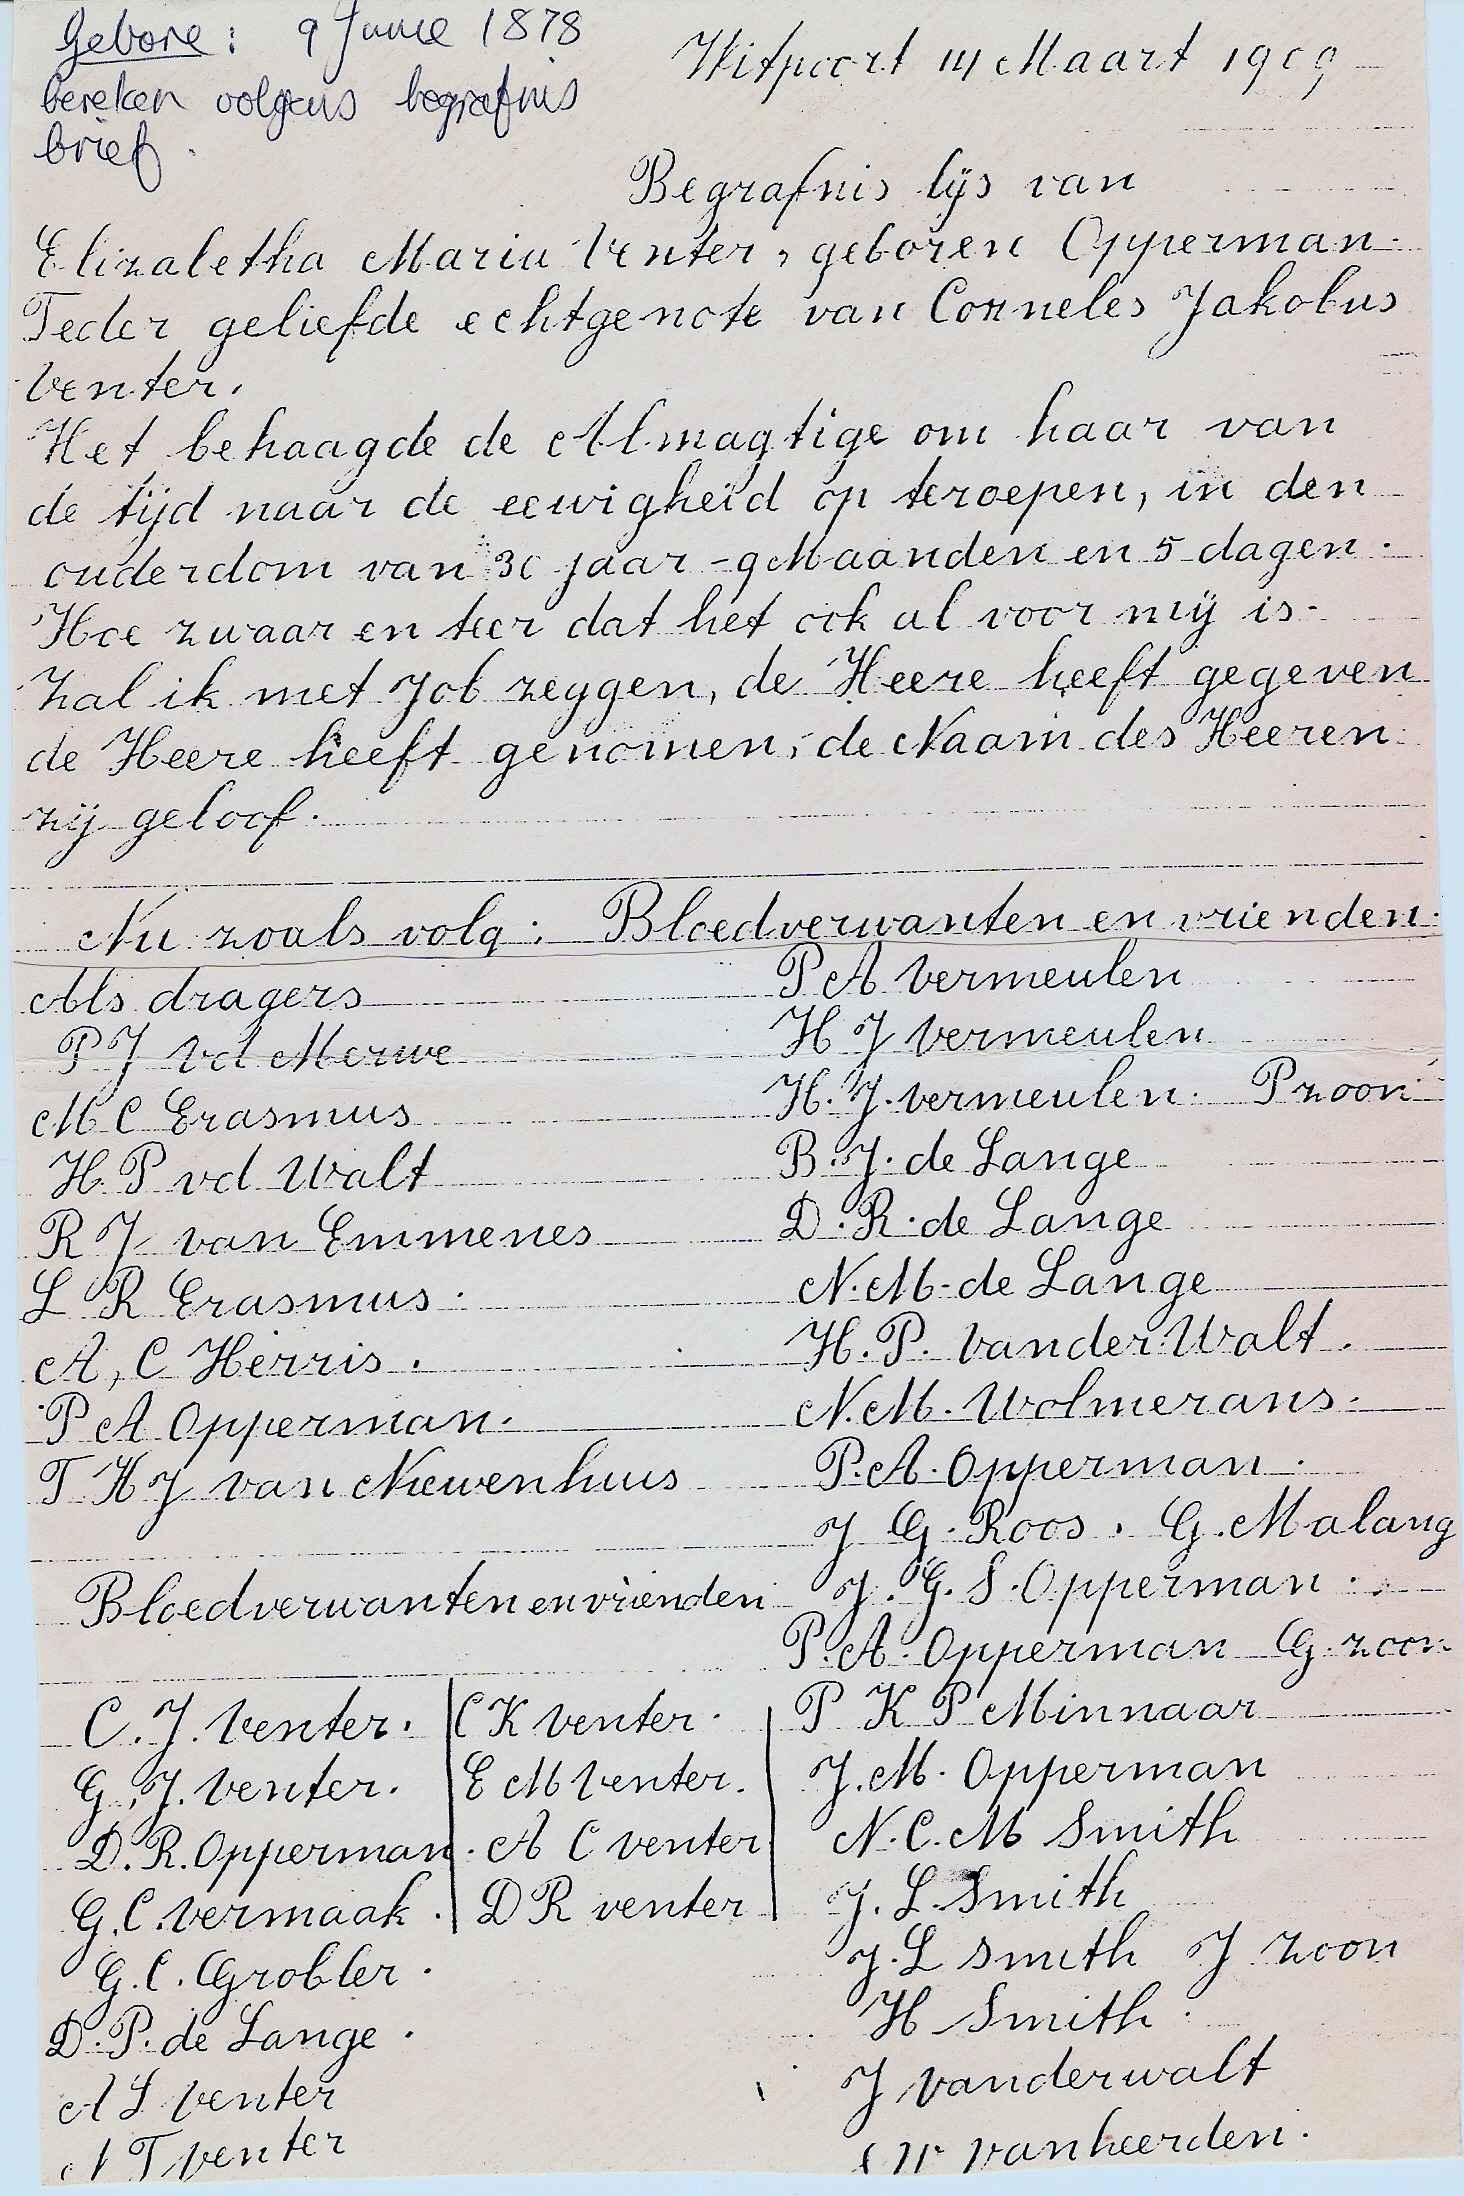 Gebore: 9 Junie 1878
bereken volgens begrafnis
brief.
Witpoort 14 Maart 1909
Begrafnis lijs van
Elizaletha Maria Venter, geboren Opperman.
Teder geliefde echtgenote van Corneles Jakobus
Venter.
Het behaagde de Almagtige om haar van
de tijd naar de eewigheid op teroepen, in den
ouderdom van 30 jaar - 9 Maanden en 5 dagen.
Hoe zwaar en teer dat het ook al voor mij is.
Zal ik met Job zeggen, de Heere heeft gegeven
de Heere heeft genomen, de Naam des Heeren
zij geloof.
Nu zoals volg: Bloedverwanten en vrienden.
Als dragers
P J vd Merwe
M C Erasmus
H P vd Walt
R J van Emmenes
L R Erasmus.
A, C Herris.
P A Opperman.
T H J van Niewenhuus
Bloedverwanten en vrienden
C. J. Venter.
G. J. Venter.
D. R. Opperman.
G. C. Vermaak.
G. C. Grobler.
D. P. de Lange.
A L Venter
T Venter
C K Venter.
E M Venter.
A C Venter
D R Venter
P A Vermeulen
H J Vermeulen
H. J. Vermeulen. P zoon
B. J. de Lange
D. R. de Lange
N. M. de Lange
H. P. Vander Walt.
N. M. Wolmerans.
P. A. Opperman.
J G. Roos. G. Malang
J. G. S. Opperman.
P. A. Opperman G. zoon
P K P Minnaar
J. M. Opperman
N. C. M Smith
J. L. Smith
J. L Smith J zoon
H Smith.
J vanderwalt
W vanheerden.